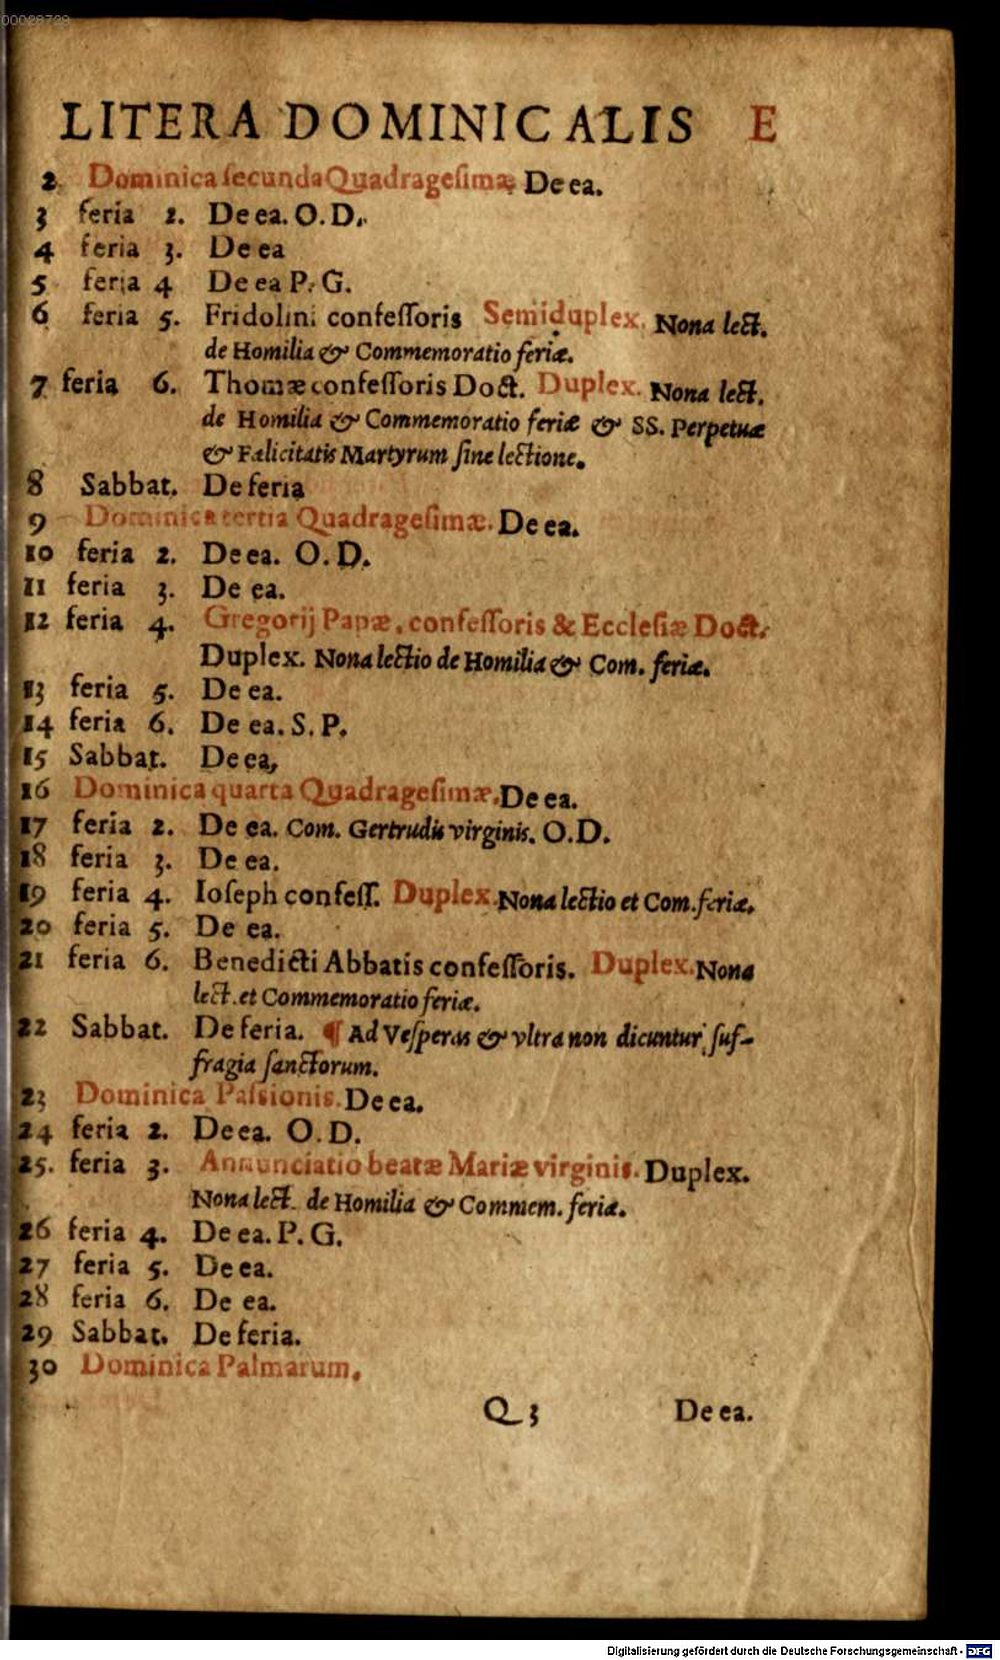 00028729
LITERA DOMINICALIS E
2. Dominica secunda Quadragesimæ De ea.
3 feria 2. De ea. O. D.
4 feria 3. De ea
5 feria 4 De ea P. G.
6 feria 5. Fridolini confessoris Semiduplex. Nona lect.
de Homilia & Commemoratio feriæ.
7 feria 6. Thomæ confessoris Doct. Duplex. Nona lect.
de Homilia & Commemoratio feriæ & SS. Perpetuæ
& Fælicitatis Martyrum sine lectione.
8 Sabbat. De feria
9 Dominica tertia Quadragesimæ. De ea.
10 feria 2. De ea. O. D.
11 feria 3. De ea.
12 feria 4. Gregorij Papæ, confessoris & Ecclesiæ Doct.
Duplex. Nona lectio de Homilia & Com. feriæ.
13 feria 5. De ea.
14 feria 6. De ea. S. P.
15 Sabbat. De ea,
16 Dominica quarta Quadragesimæ. De ea.
17 feria 2. De ea. Com. Gertrudis virginis. O. D.
18 feria 3. De ea.
19 feria 4. Ioseph confess. Duplex. Nona lectio et Com. feriæ.
20 feria 5. De ea.
21 feria 6. Benedicti Abbatis confessoris. Duplex. Nona
lect. et Commemoratio feriæ.
22 Sabbat. De feria. ¶ Ad Vesperas & vltra non dicuntur suf-
fragia sanctorum.
23 Dominica Passionis. De ea.
24 feria 2. De ea. O. D.
25. feria 3. Annunciatio beatæ Mariæ virginis. Duplex.
Nona lect. de Homilia & Commem. feriæ.
26 feria 4. De ea. P. G.
27 feria 5. De ea.
28 feria 6. De ea.
29 Sabbat. De feria.
30 Dominica Palmarum.
Q 3 De ea.
Digitalisierung gefördert durch die Deutsche Forschungsgemeinschaft - DFG